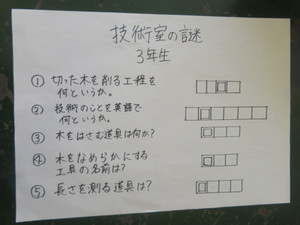 技術室の謎
3年生
① 切った木を削る工程を
何というか。
② 技術のことを英語で
何というか。
③ 木をはさむ道具は何か?
④ 木をなめらかにする
工具の名前は?
⑤ 長さを測る道具は?